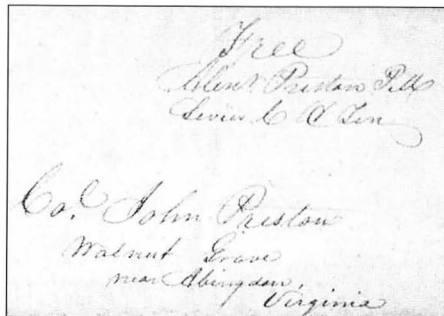 Free
Preston P.M.
Sevier C. H Ten
Col. John Preston
Walnut Grove
near Abingdon,
Virginia